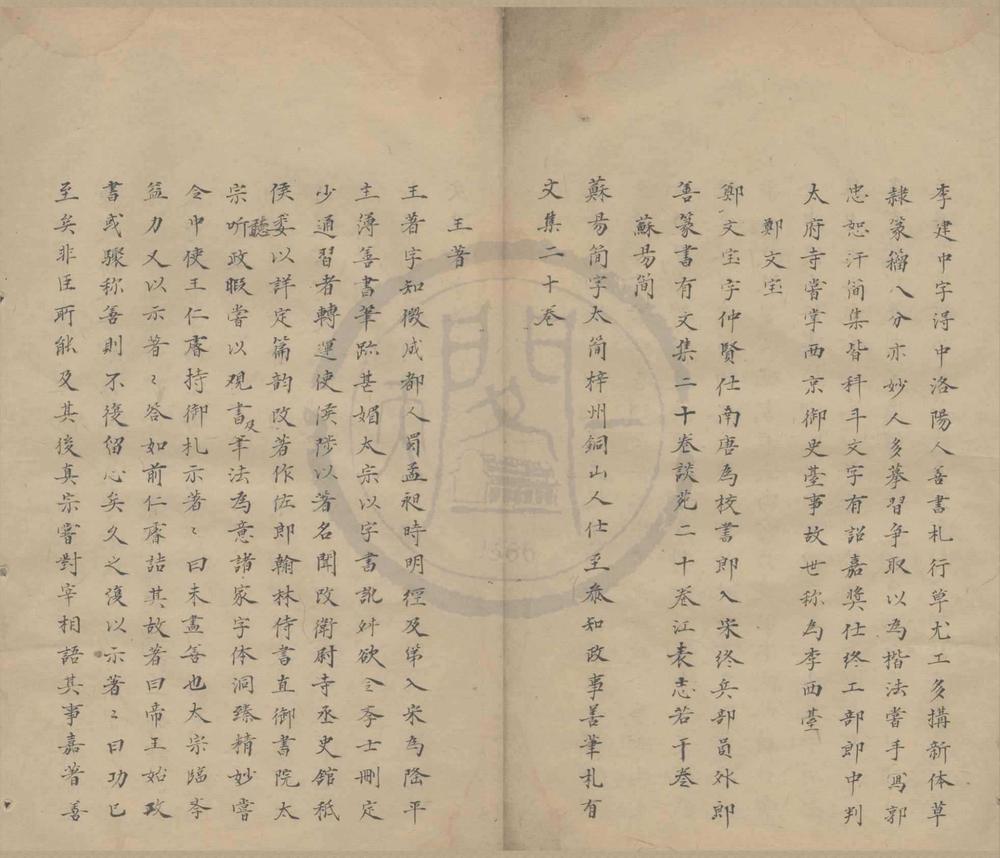 李建中字淂中洛陽人善書札行草尤工多搆新体草
隷篆籀八分亦妙人多摹習争取以為楷法嘗手寫郭
忠恕汗簡集皆科斗文字有詔嘉奬仕终工部郎中判
太府寺嘗掌西京御史臺事故世称為李西臺
鄭文宝
鄭文宝字仲賢仕南唐為校書郎入宋终兵部員外郎
善篆書有文集二十卷談苑二十卷江表志若干卷
蘇易簡
蘇易簡字太簡梓州銅山人仕至叅知政事善筆札有
文集二十卷
王著
王著字知微成都人蜀孟昶時明經及第入宋為隆平
主簿善書筆跡甚媚太宗以字書訛舛欲令斈士刪定
少通習者轉運使侯陟以著名聞改衛尉寺丞史館秪
侯委以詳定篇韵改著作佐郎翰林侍書直御書院太
宗听聽政暇嘗以观書及筆法為意諸家字体洞臻精妙嘗
令中使王仁睿持御札示著〻曰未盡善也太宗臨斈
益力又以示著〻答如前仁睿詰其故著曰帝王始攻
書或驟称善則不復留心矣久之復以示著〻曰功已
至矣非臣所能及其後真宗嘗對宰相語其事嘉著善